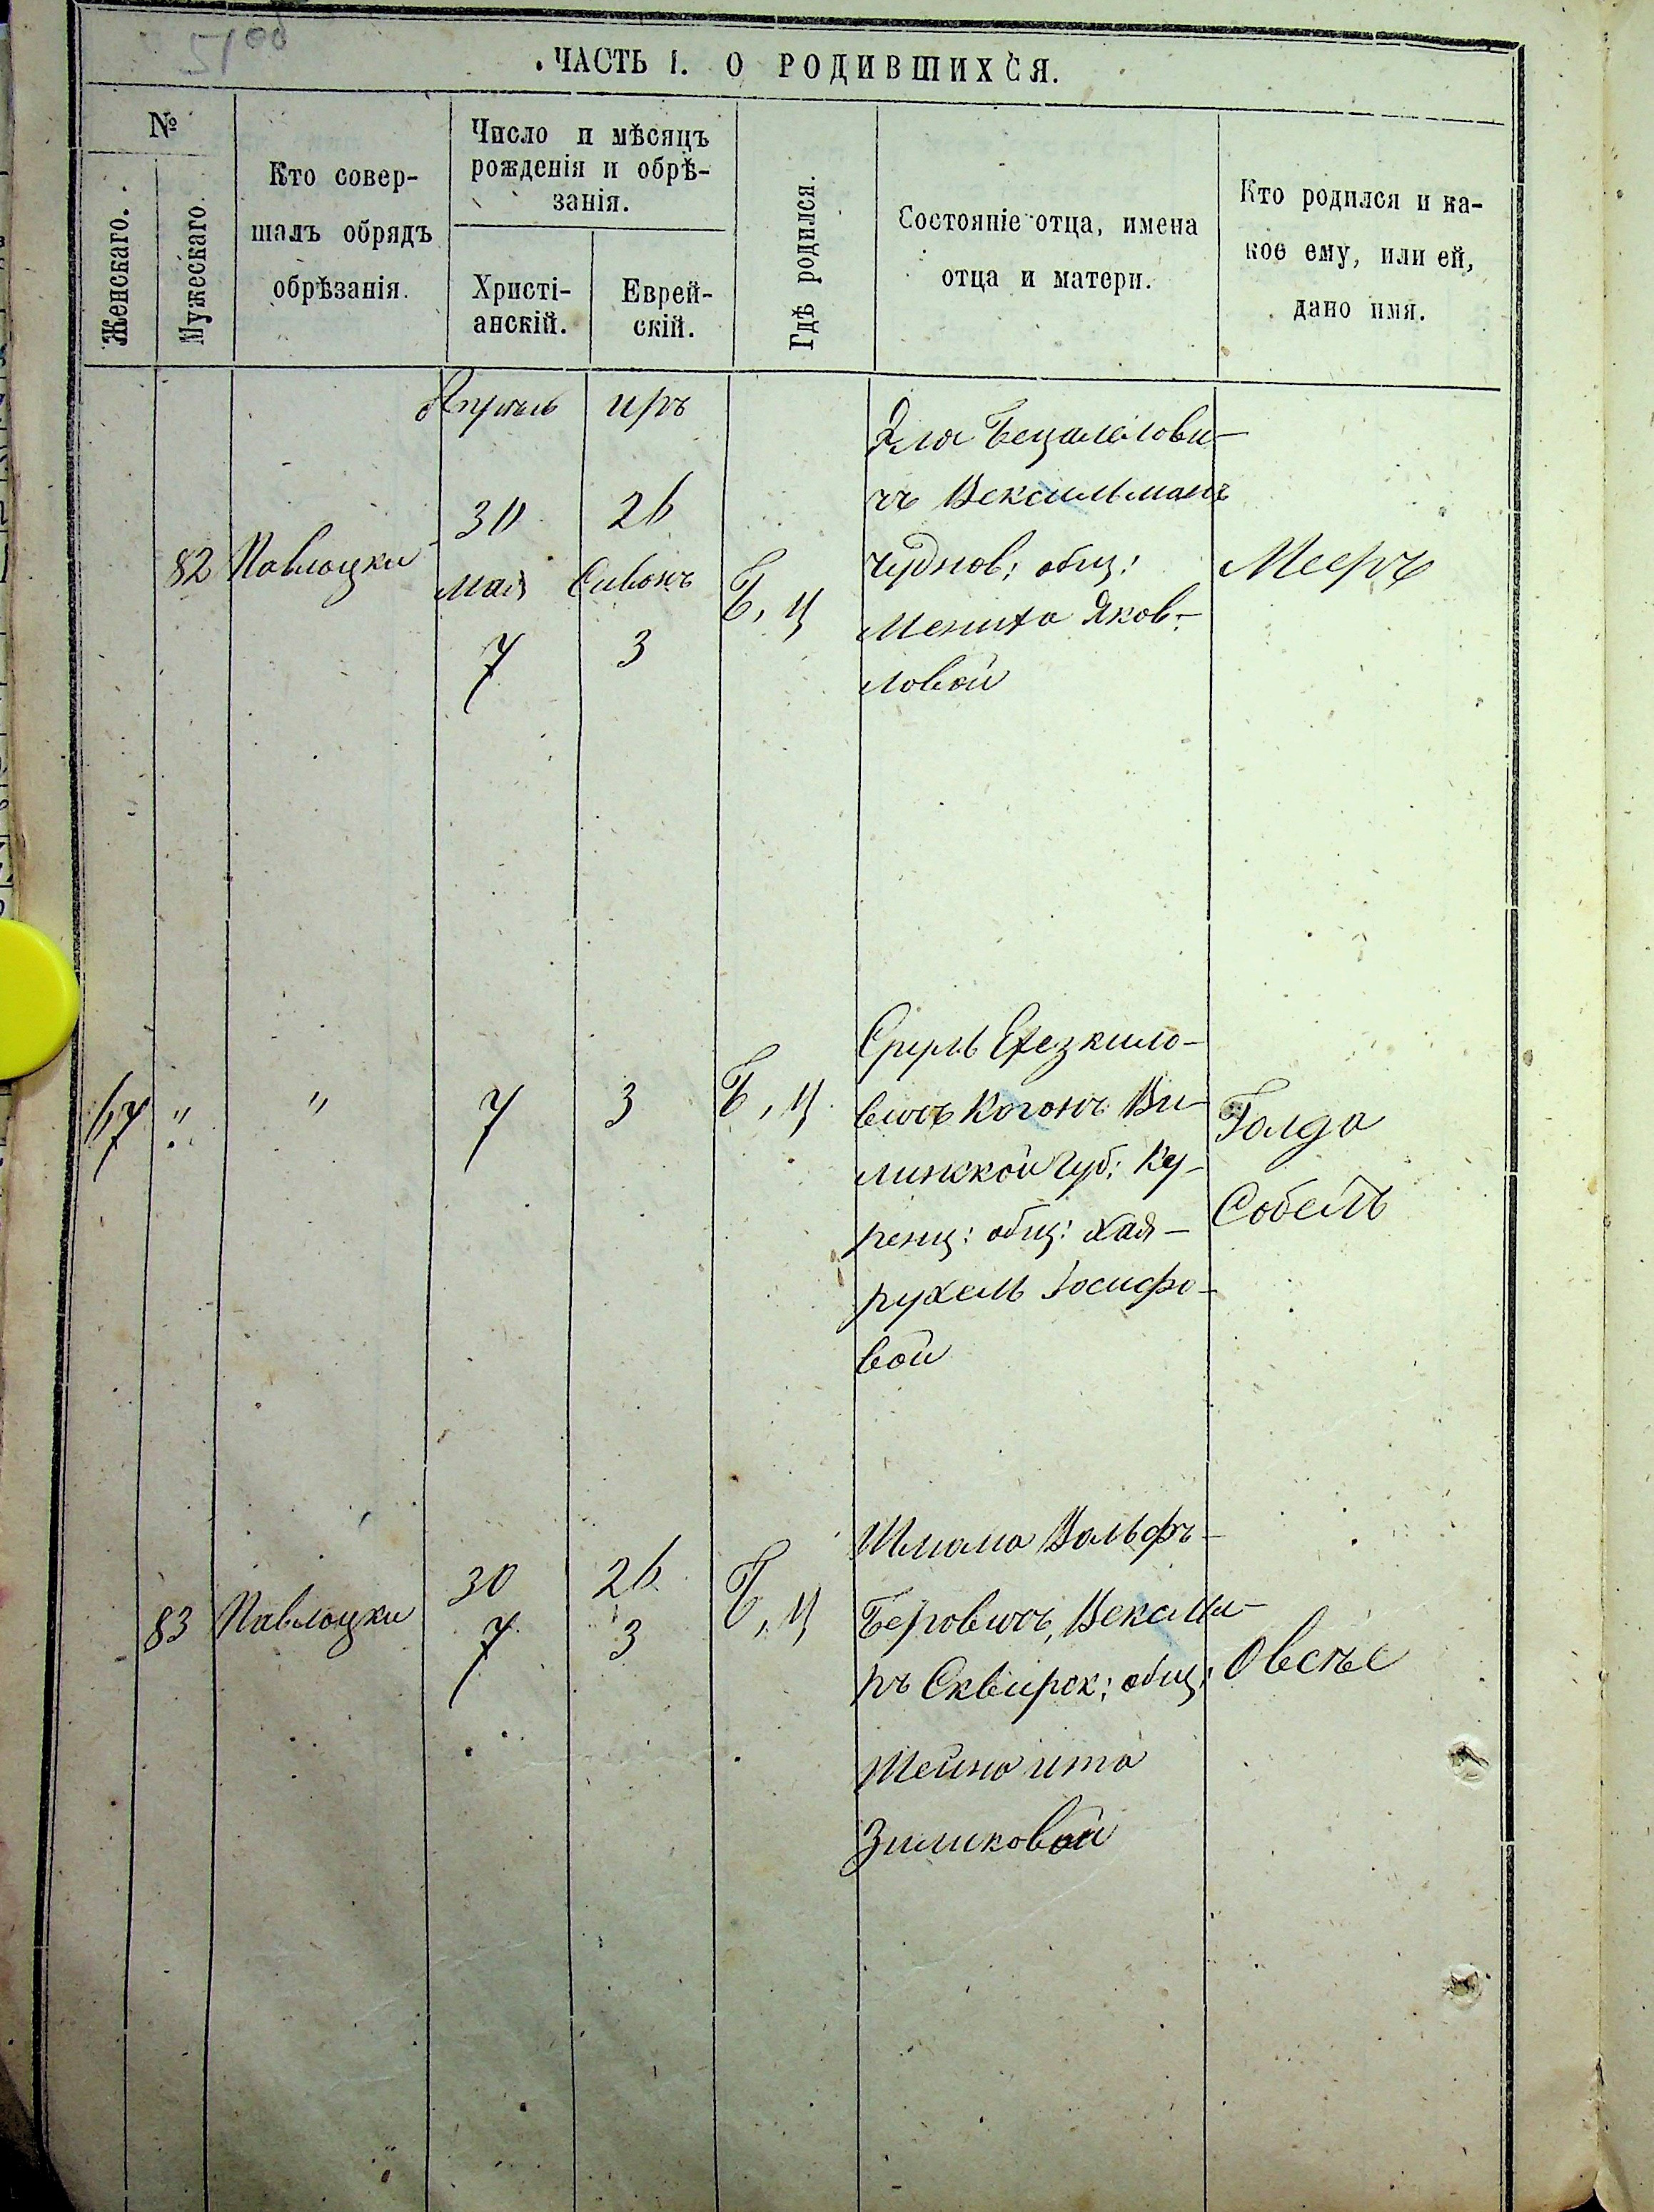 51об
ЧАСТЬ I. О РОДИВШИХСЯ.
№
Женскаго.
Мужескаго.
Кто совер-
шалъ обрядъ
обрѣзанія.
Число и мѣсяцъ
рожденія и обрѣ-
занія.
Христі-
анскій.
Еврей-
скій.
Гдѣ родился.
Состояніе отца, имена
отца и матери.
Кто родился и ка-
кое ему, или ей,
дано имя.
Апрель
иръ
30
26
82
Павлоцки
мая
Сивонъ
7
3
Б, Ц
Эля Бецалелови-
чъ Вексильманъ
чуднов: общ:
Мениха Яков-
ловой
Мееръ
67
"
"
7
3
Б, Ц
Сруль Ехезкило-
вичъ Когонъ Ви-
линской губ: Ку-
ренц: общ: Хая-
рухель Іосифо-
вой
Голда
Собель
83
Павлоцки
30
26
7
3
Б, Ц
Шлома Вольфъ-
Беровичъ, Векслѣ-
ръ Сквирск: общ:
Шейна ита
Зиликовой
Овсѣе